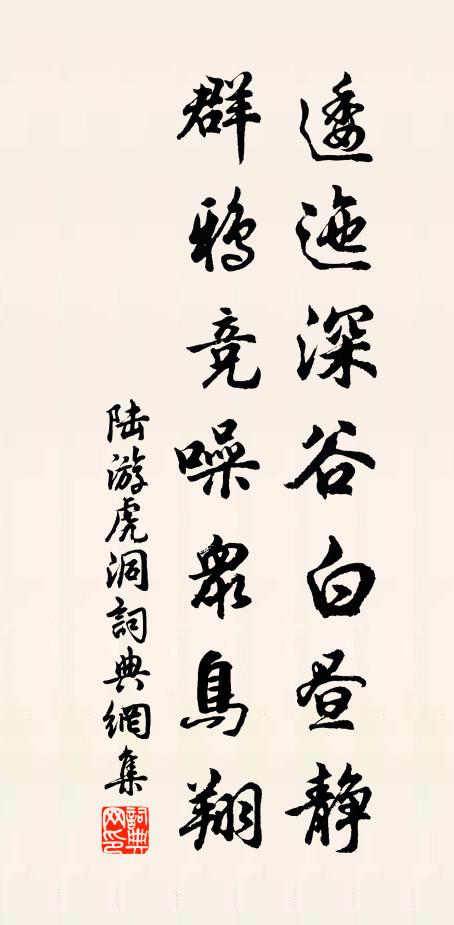 逶迤深谷白昼静
群鸦竞噪众鸟翔
陆游虎洞詞典網集
詞典网印